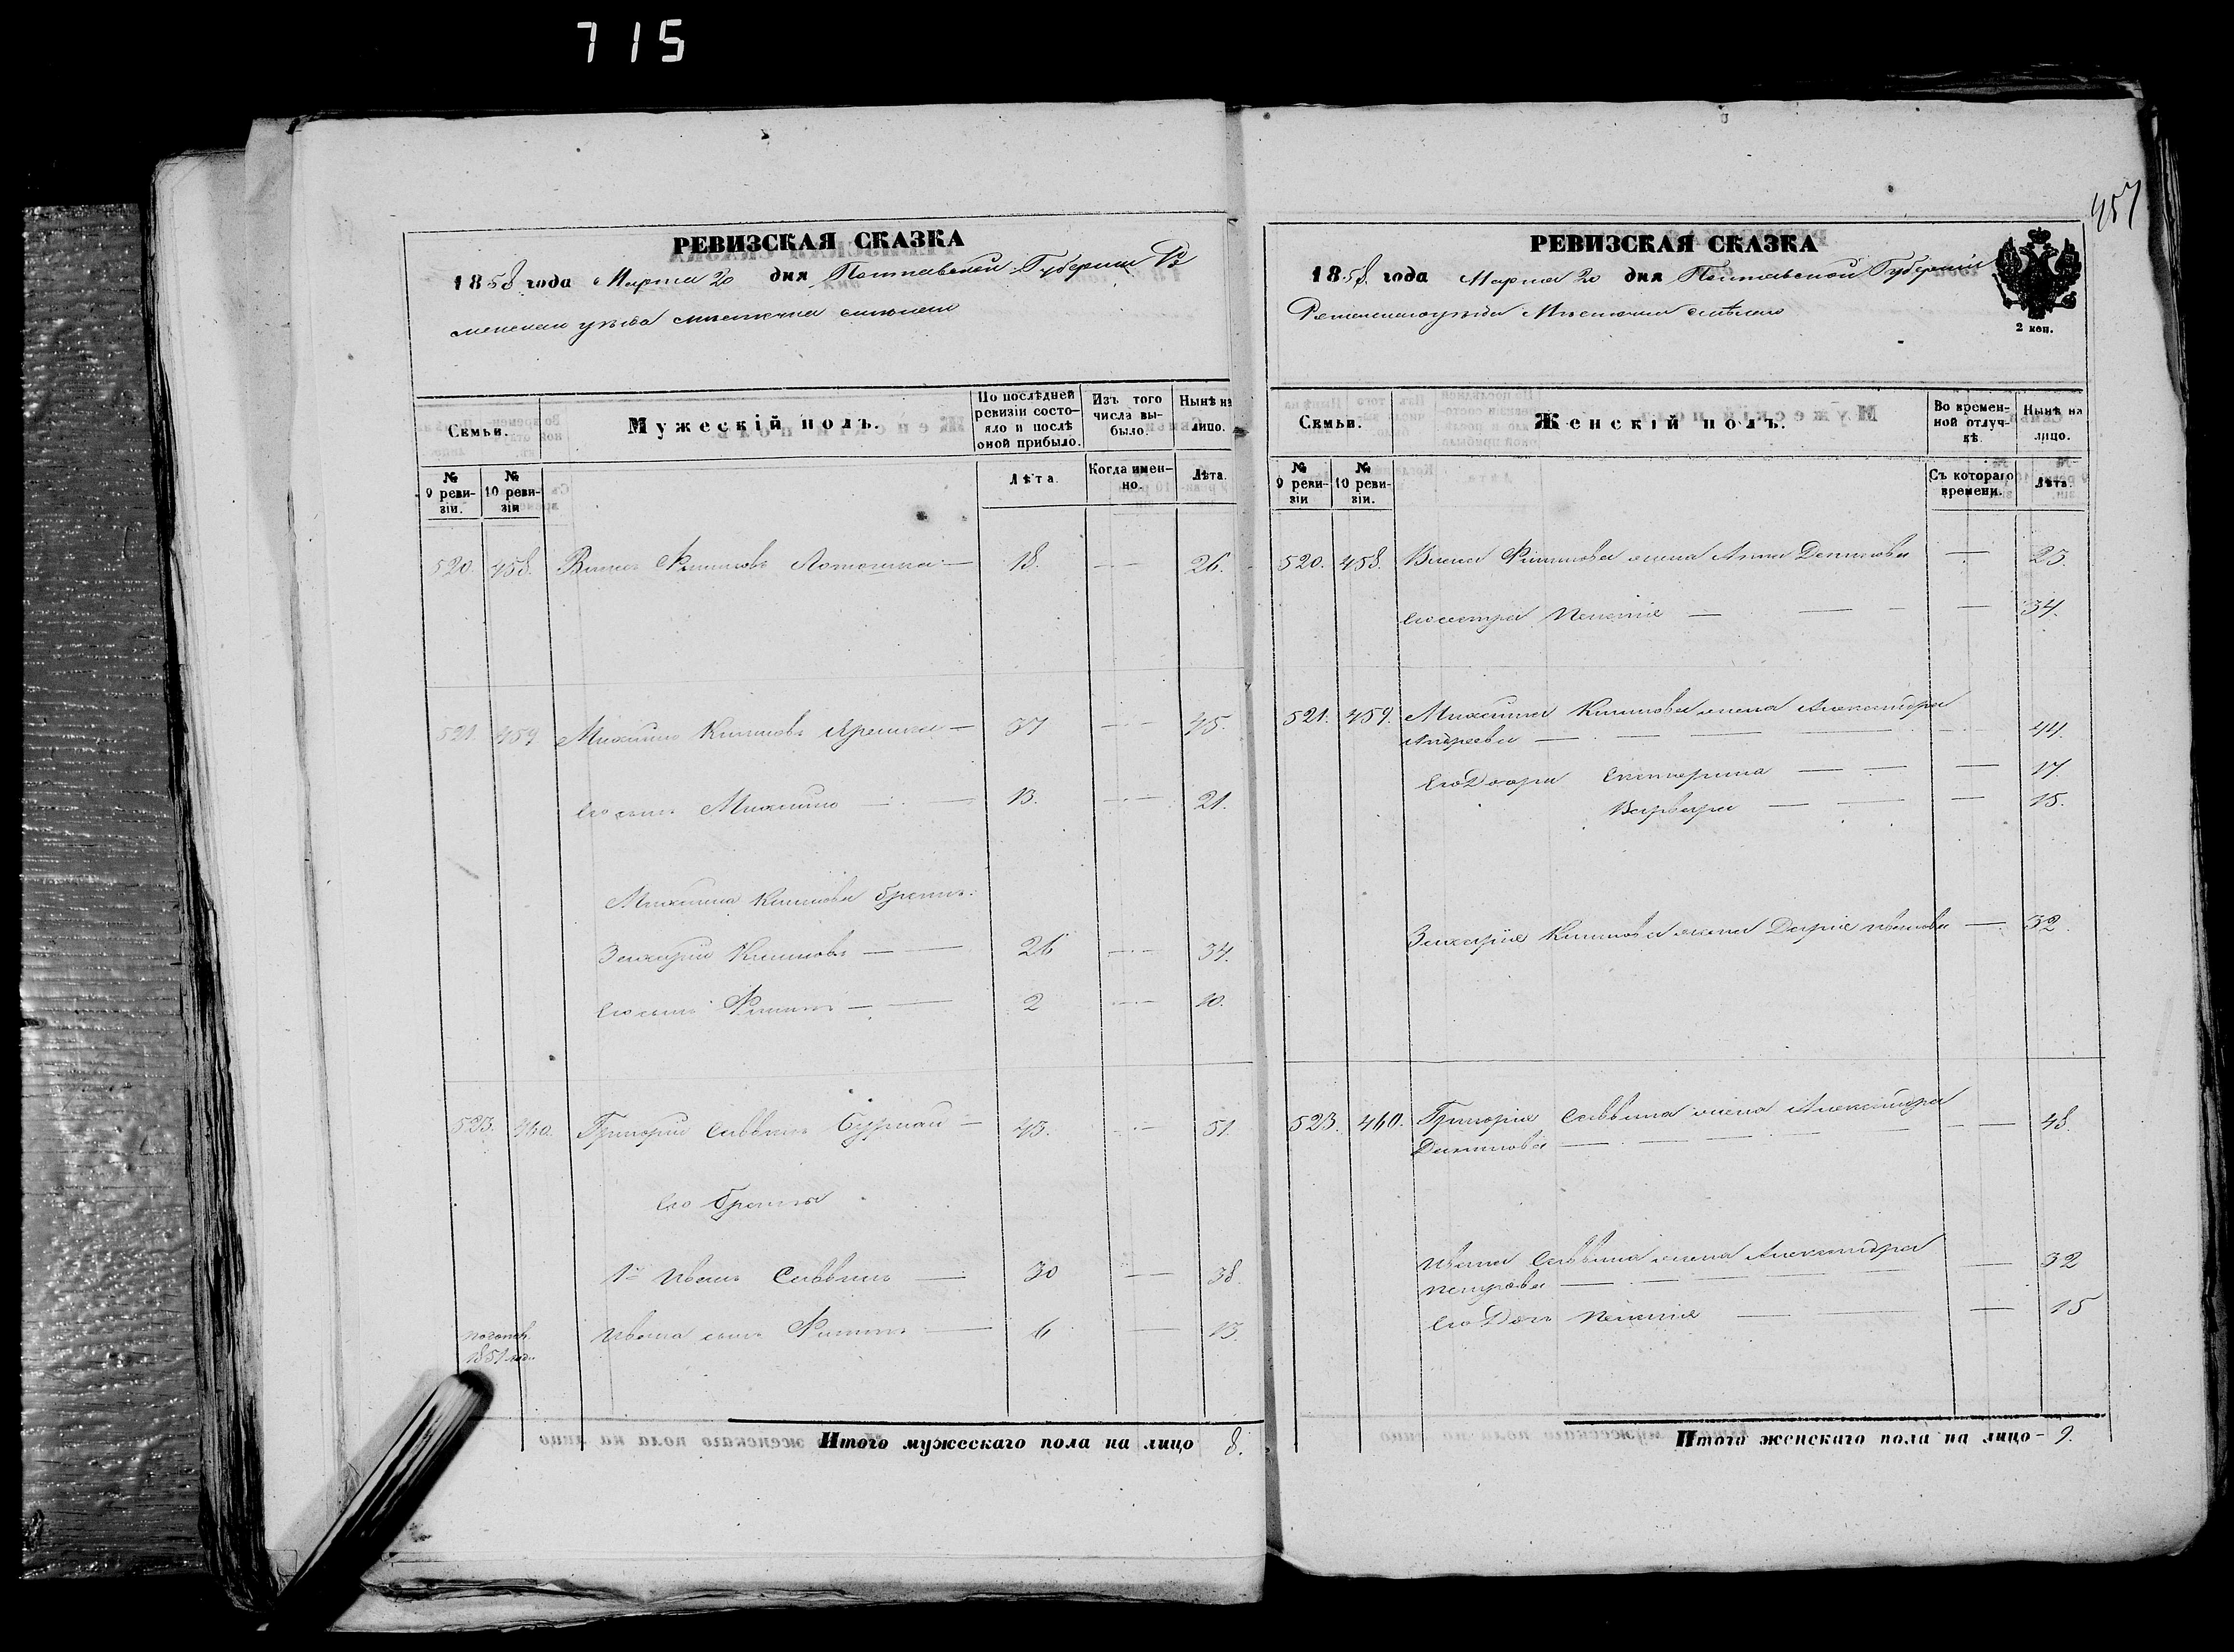 715
РЕВИЗСКАЯ СКАЗКА
1858 года Марта 20 дня Полтавской Губерніи Ро
менскаго уѣзда мѣстечка Смѣлаго
Семьи.
Мужескій полъ.
По послѣдней ревизіи состояло и послѣ оной прибыло.
Изъ того числа выбыло.
Нынѣ на лицо.
№ 9 ревизіи.
№ 10 ревизіи
Лѣта.
Когда именно.
Лѣта.
520. 458. Филиповъ 18. 26.
521. 459 Михаилъ Климовъ 37 45.
Его сынъ Михаилъ 13. 21.
Михаила Климова братъ:
Захарій Климовъ 26 34.
Его сынъ Филипъ 2 10.
523. 460. Григорій Саввинъ 43. 51.
Его братья
1й Иванъ Саввинъ 30 38.
Ивана сынъ Филипъ 6 13.
1851
Итого мужескаго пола на лицо 8.
457
РЕВИЗСКАЯ СКАЗКА
1858 года Марта 20 дня Полтавской Губерніи
Роменскаго уѣзда Мѣстечка Смѣлаго
2 коп.
Семьи.
Женскій полъ.
Во временной отлучкѣ.
Нынѣ на лицо.
№ 9 ревизіи
№ 10 ревизіи.
Съ котораго времени.
Лѣта.
520. 458. Филипова жена Анна Данилова 25.
Его сестра Пелагія 34.
521. 459. Михаила Климова жена Александра
Андреева 44.
Его Дочери Екатерина 17.
Варвара 15.
Захарія Климова жена Дарія Иванова 32.
523. 460. Григорія Саввина жена Александра
Данилова 48.
Ивана Саввина жена Александра
Петрова 32
Его Дочь Пелагія 15
Итого женскаго пола на лицо 9.